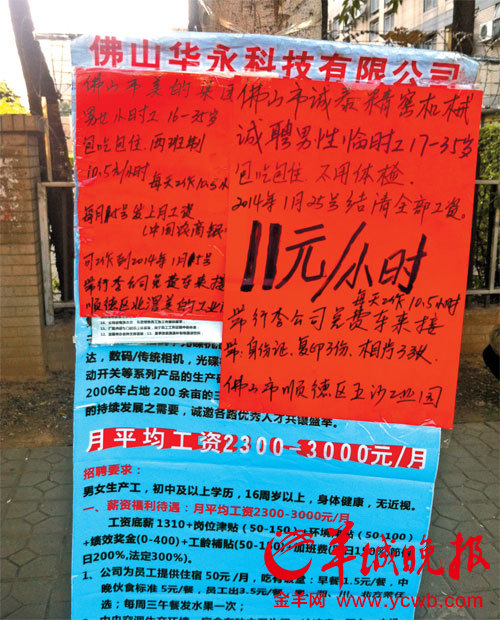 佛山华永科技有限公司
佛山市美的集团
男女小时工16-35岁
包吃包住、两班制
10.5元/小时 每天工作10.5小
每月15号发上月工资
(中国农商银
可工作到2014年1月15号
带行李公司免费车来接
顺德区北滘美的工业
佛山市诚泰精密机械
诚聘男性临时工17-35岁
包吃包住 不用体检.
2014年1月25号结清全部工资.
11元/小时
每天工作10.5小时
带行李公司免费车来接
带:身份证、复印3份、相片3张
佛山市顺德区五沙工业园
达,数码/传统相机,光碟
动开关等系列产品的生产
2006年占地200余亩的三
的持续发展之需要,诚邀各路优秀人才共襄盛举。
月平均工资2300-3000元/月
招聘要求:
男女生产工,初中及以上学历,16周岁以上,身体健康,无近视。
一、薪资福利待遇:月平均工资2300-3000元/月
工资底薪1310+岗位津贴(50-150)+环境津贴(50-100)
+绩效奖金(0-400)+工龄补贴(50-
日200%,法定300%)。
1、公司为员工提供住宿50元/月,吃有
早餐1.5元/餐、中
晚伙食标准5元/餐,员工出3.5元/餐
选;每周三午餐发水果一次;
羊城晚报
金羊网 www.ycwb.com